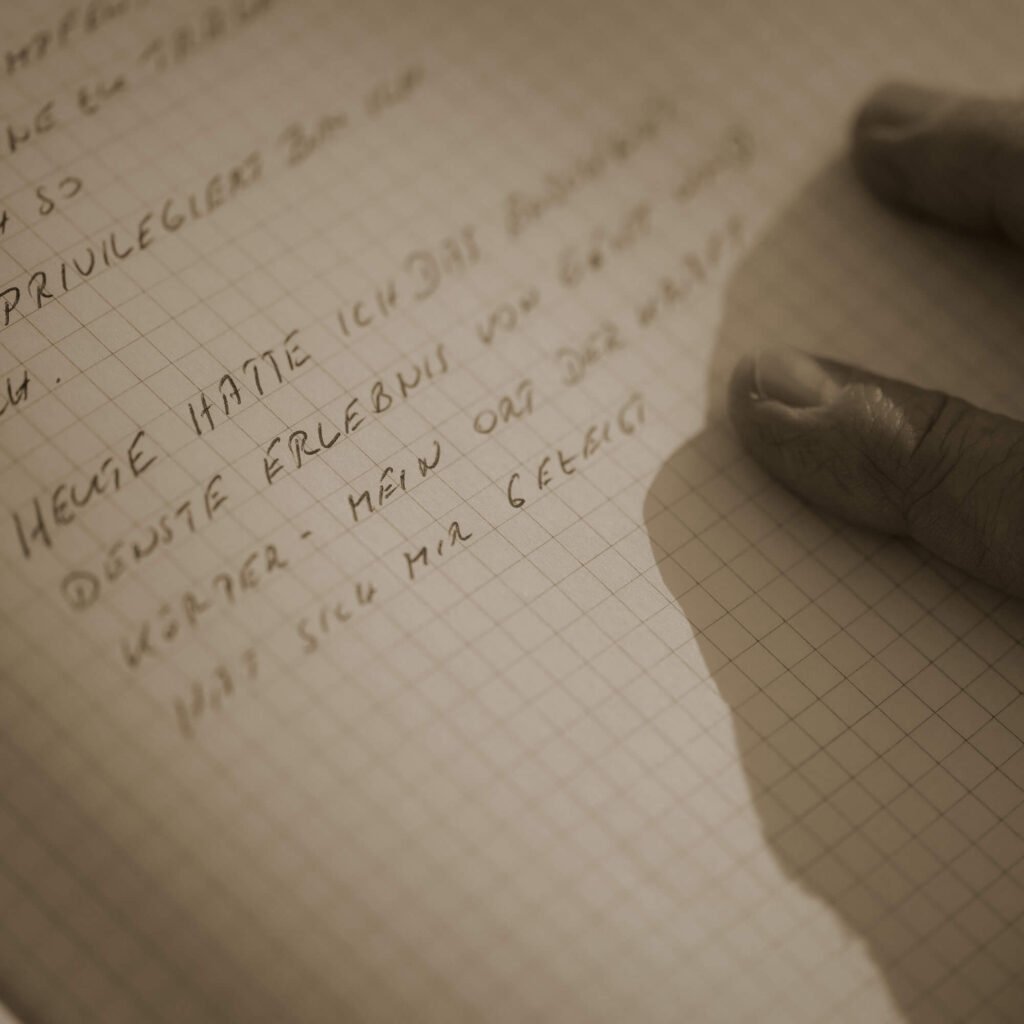 SO
PRIVILEGIERT BIN
HEUTE HATTE ICH DAS
DENSTE ERLEBNIS VON GEIST UND
KÖRPER - MEIN ORT DER KRAFT
HAT SICH MIR GEZEIGT